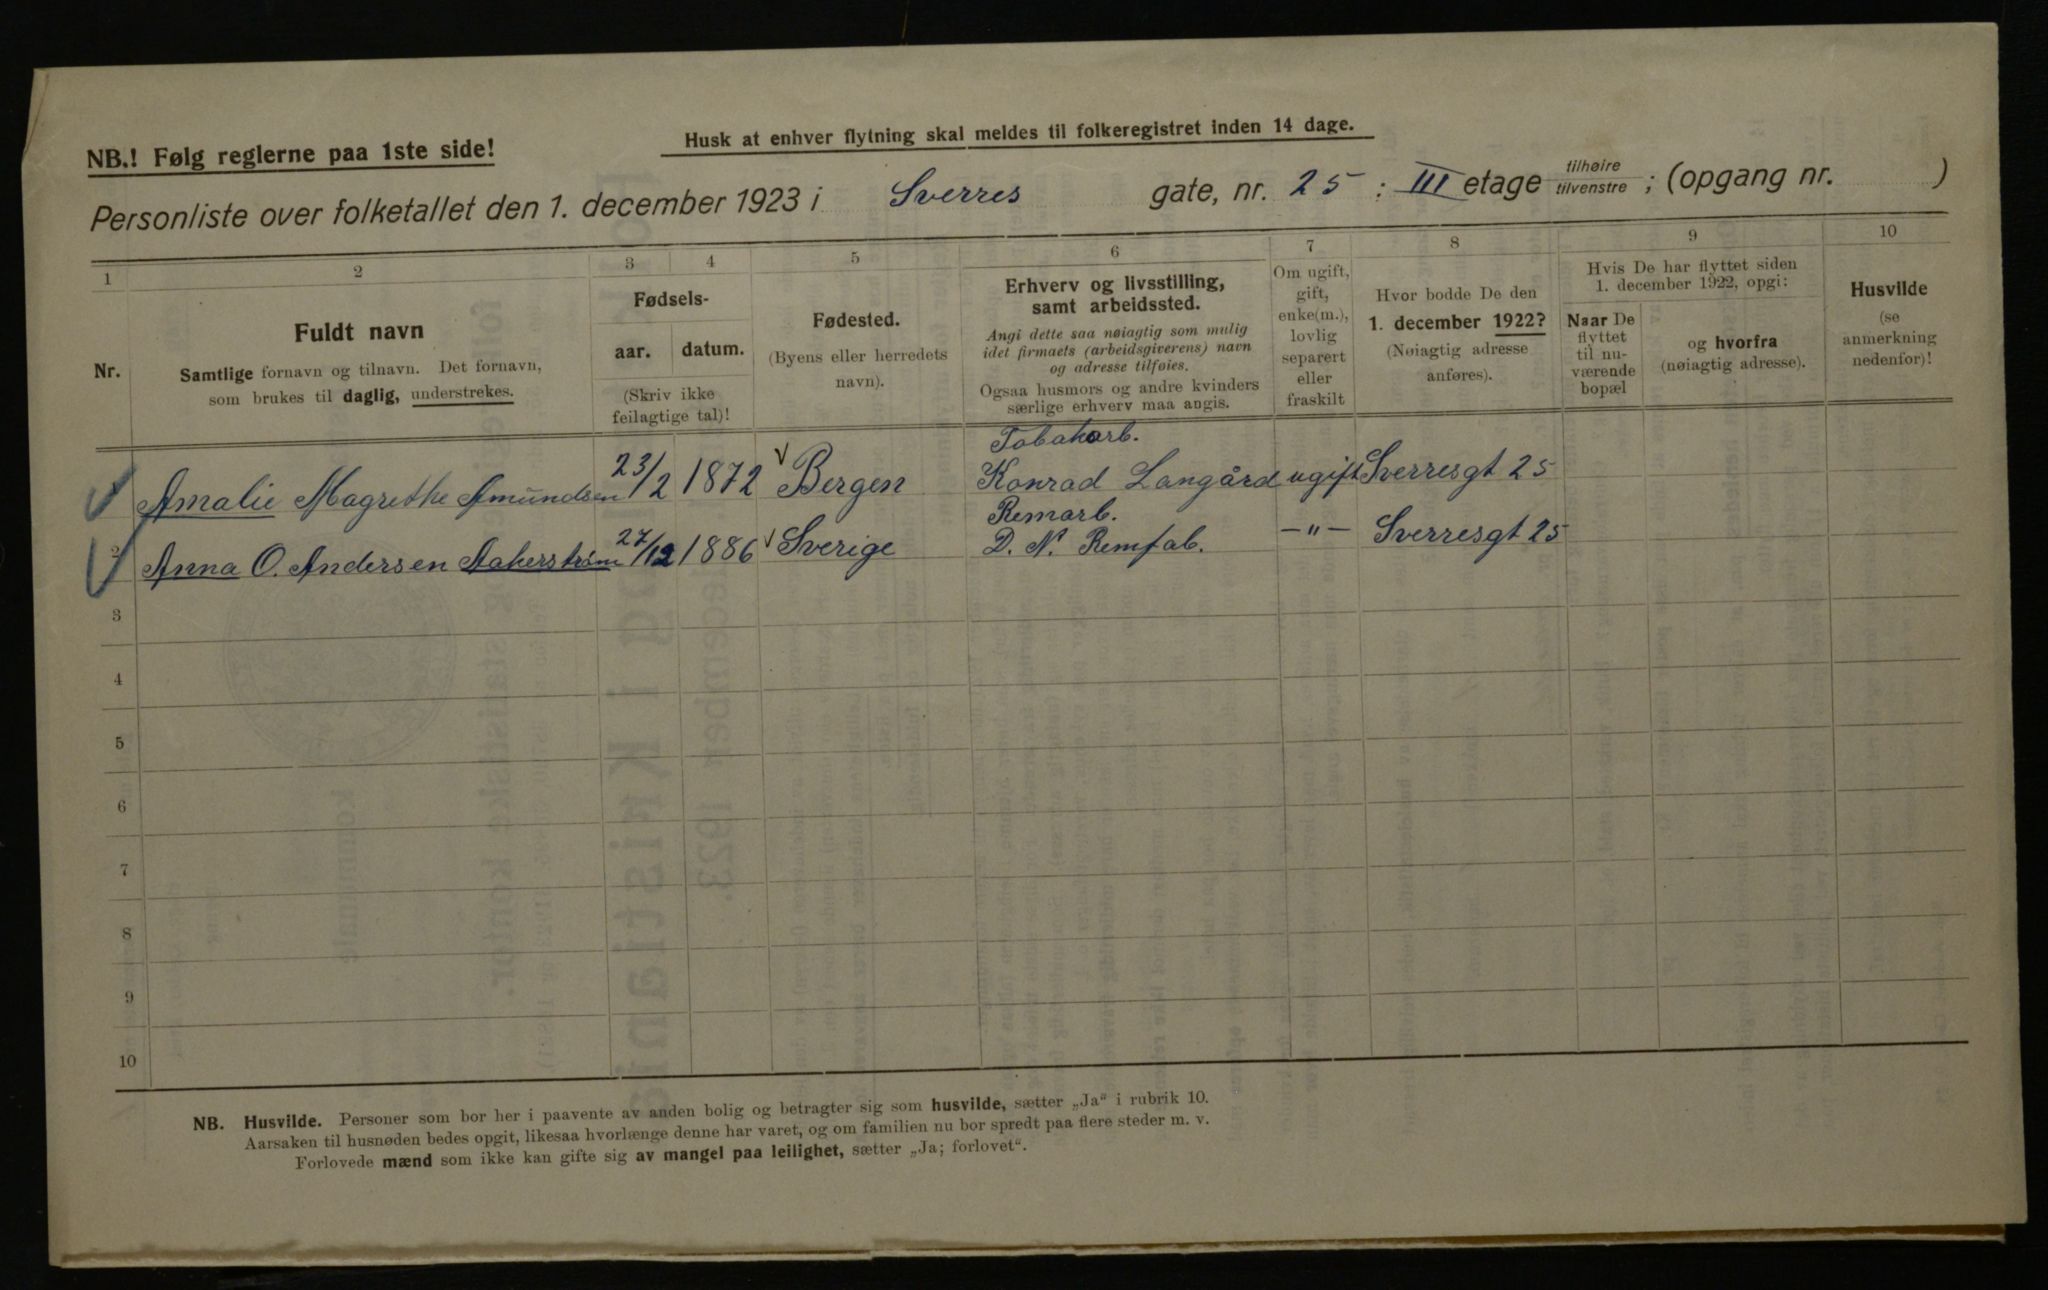 Husk at enhver flytning skal meldes til folkeregistret inden 14 dage.
NB.! Følg reglerne paa 1ste side!
Personliste over folketallet den 1. december 1923 i Sverres gate, nr. 25 : III etage tilhøire tilvenstre ; (opgang nr. )
1 2 3 4 5 6 7 8 9 10
Nr.
Fuldt navn
Samtlige fornavn og tilnavn. Det fornavn,
som brukes til daglig, understrekes.
Fødsels-
aar. datum.
(Skriv ikke
feilagtige tal)!
Fødested.
(Byens eller herredets
navn).
Erhverv og livsstilling,
samt arbeidssted.
Angi dette saa nøiagtig som mulig
idet firmaets (arbeidsgiverens) navn
og adresse tilføies.
Ogsaa husmors og andre kvinders
særlige erhverv maa angis.
Om ugift,
gift,
enke(m.),
lovlig
separert
eller
fraskilt
Hvor bodde De den
1. december 1922?
(Nøiagtig adresse
anføres).
Hvis De har flyttet siden
1. december 1922, opgi:
Naar De
flyttet
til nu-
værende
bopæl
og hvorfra
(nøiagtig adresse).
Husvilde
(se
anmerkning
nedenfor)!
Tobakarb.
1 Amalie Magrethe Amundsen 23/2 1872 Bergen Konrad Langård ugift Sverresgt 25
Remarb.
2 Anna O. Andersen Aakerstrøm 27/12 1886 Sverige D. N. Remfab. -"- Sverresgt 25
3
4
5
6
7
8
9
10
NB. Husvilde. Personer som bor her i paavente av anden bolig og betragter sig som husvilde, sætter „Ja“ i rubrik 10.
Aarsaken til husnøden bedes opgit, likesaa hvorlænge denne har varet, og om familien nu bor spredt paa flere steder m. v.
Forlovede mænd som ikke kan gifte sig av mangel paa leilighet, sætter „Ja; forlovet“.